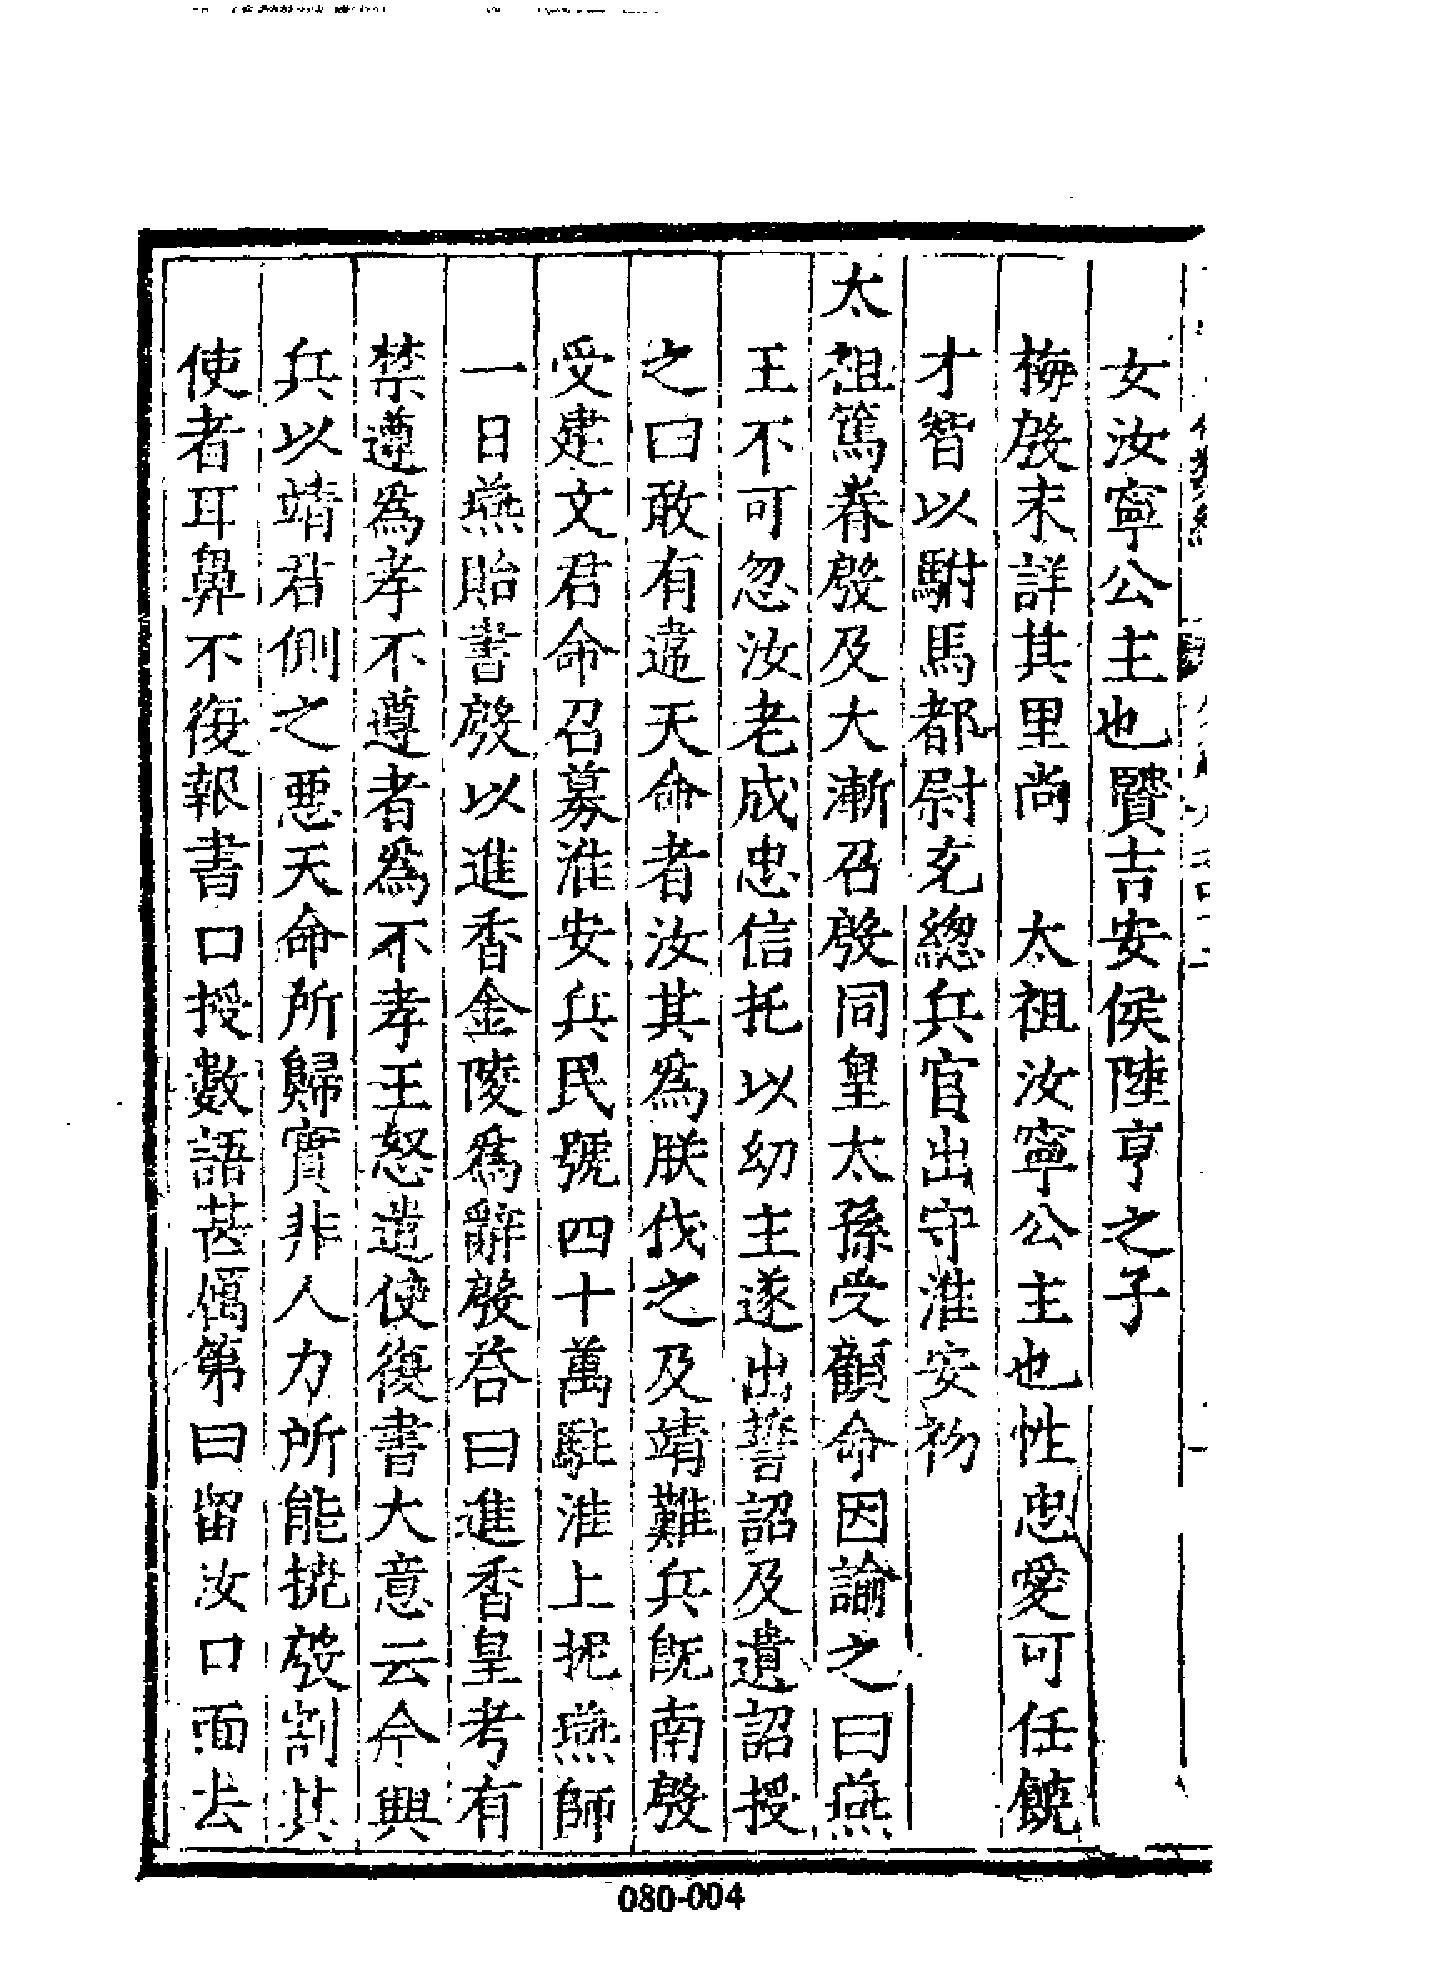 女汝寧公主也賢吉安侯陸亨之子
梅殷未詳其里尚　太祖汝寧公主也性忠愛可任饒
才智以駙馬都尉充總兵官出守淮安初
太祖篤眷殷及大漸召殷同皇太孫受顧命因諭之曰燕
王不可忽汝老成忠信托以幼主遂出誓詔及遺詔授
之曰敢有違天命者汝其為朕伐之及靖難兵旣南殷
受建文君命召募淮安兵民號四十萬駐淮上扼燕師
一日燕貽書殷以進香金陵爲辭殷荅曰進香皇考有
禁遵爲孝不遵者爲不孝王怒遣使復書大意云今興
兵以靖君側之惡天命所歸實非人力所能撓殷割其
使者耳鼻不復報書口授數語甚厲第曰留汝口面去
080-004